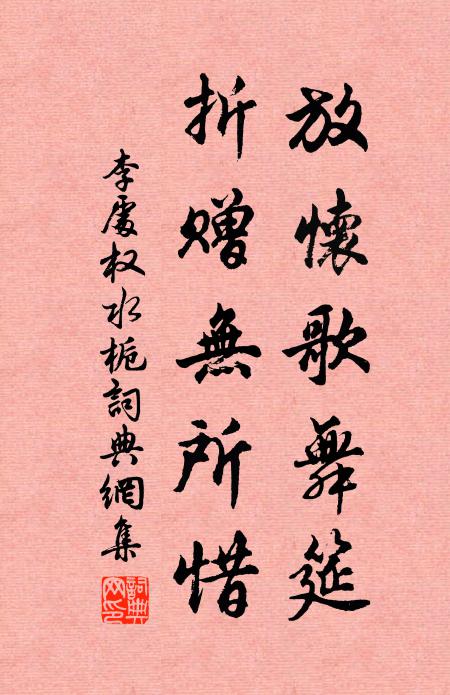 放懷歌舞筵
折赠無所惜
李處权水栀詞典網集
詞典網印